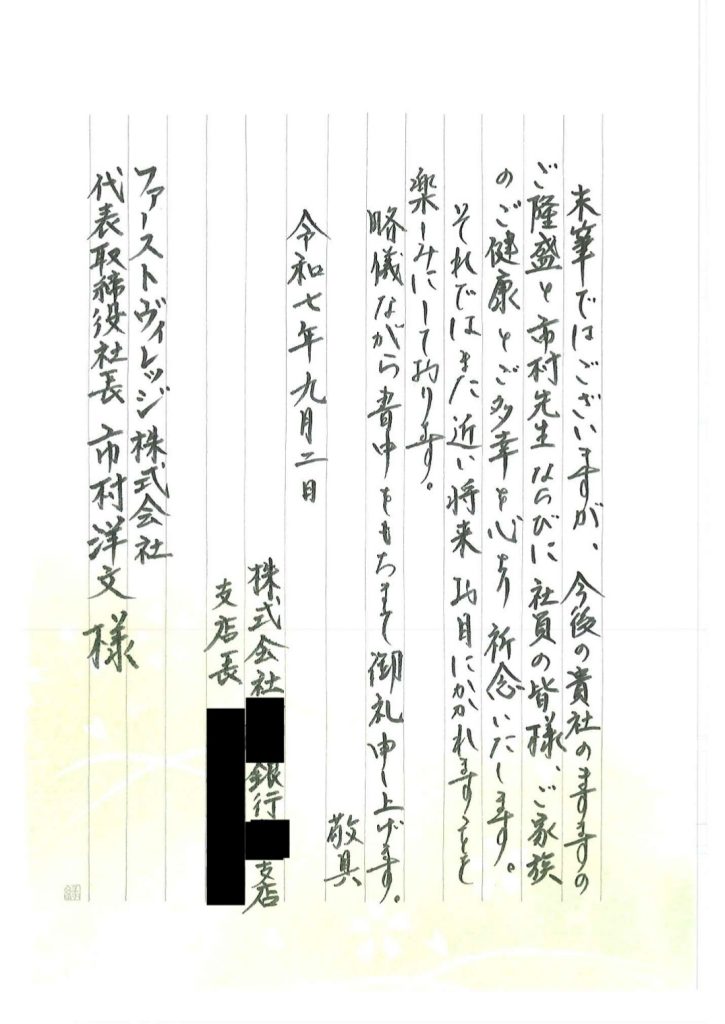 末筆ではございますが、今後の貴社のますますの
ご隆盛と市村先生ならびに社員の皆様、ご家族
のご健康とご多幸を心より祈念いたします。
それではまた近い将来お目にかかれますことを
楽しみにして おります。
略儀ながら書中をもちまして御礼申し上げます。
敬具
令和七年九月二日
株式会社 銀行 支店
支店長
ファーストヴィレッジ株式会社
代表取締役社長 市村洋文様